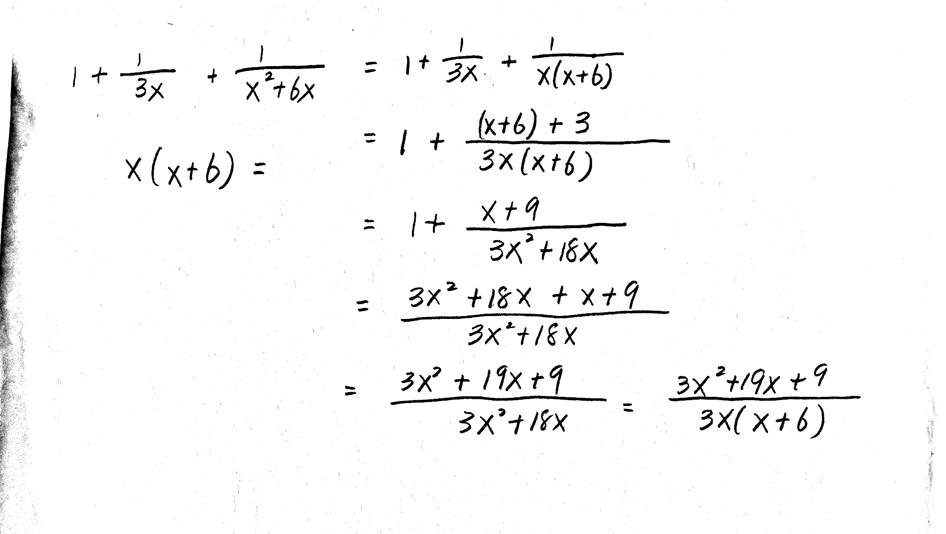 1 + 1/3x + 1/x²+6x = 1 + 1/3x + 1/x(x+6)
= 1 + (x+6) + 3/3x(x+6)
x(x+6) =
= 1 + x+9/3x²+18x
= 3x² + 18x + x + 9/3x²+18x
= 3x² + 19x + 9/3x²+18x = 3x²+19x+9/3x(x+6)